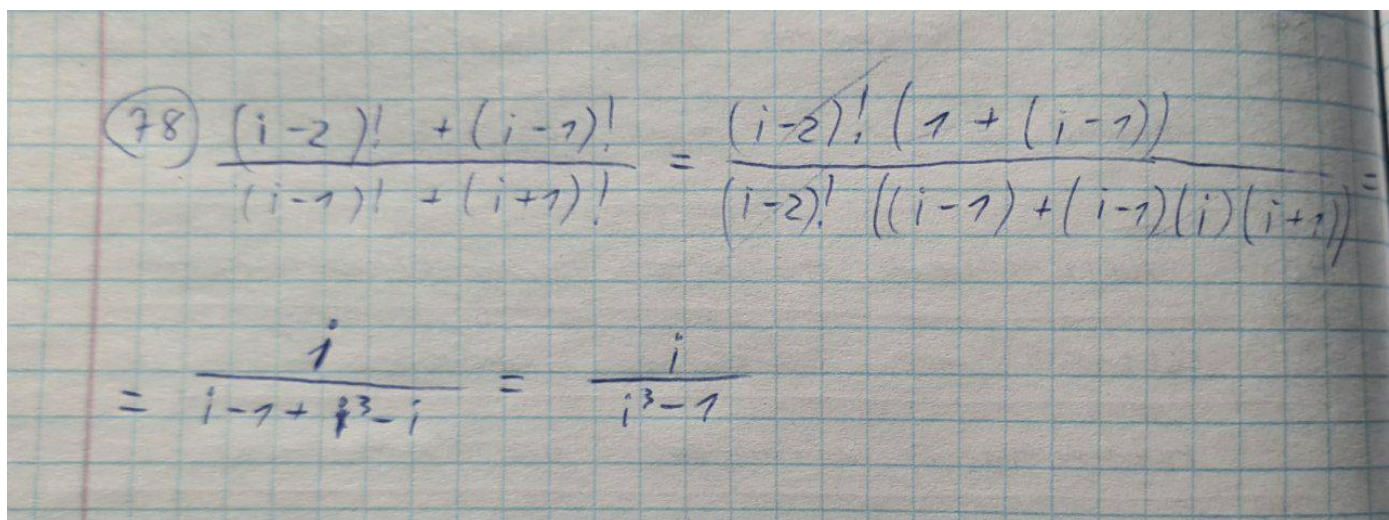 78 ((i-2)! + (i-1)!) / ((i-1)! + (i+1)!) = ((i-2)! (1 + (i-1))) / ((i-2)! ((i-1) + (i-1)(i)(i+1))) =
= i / (i-1+i³-i) = i / (i³-1)